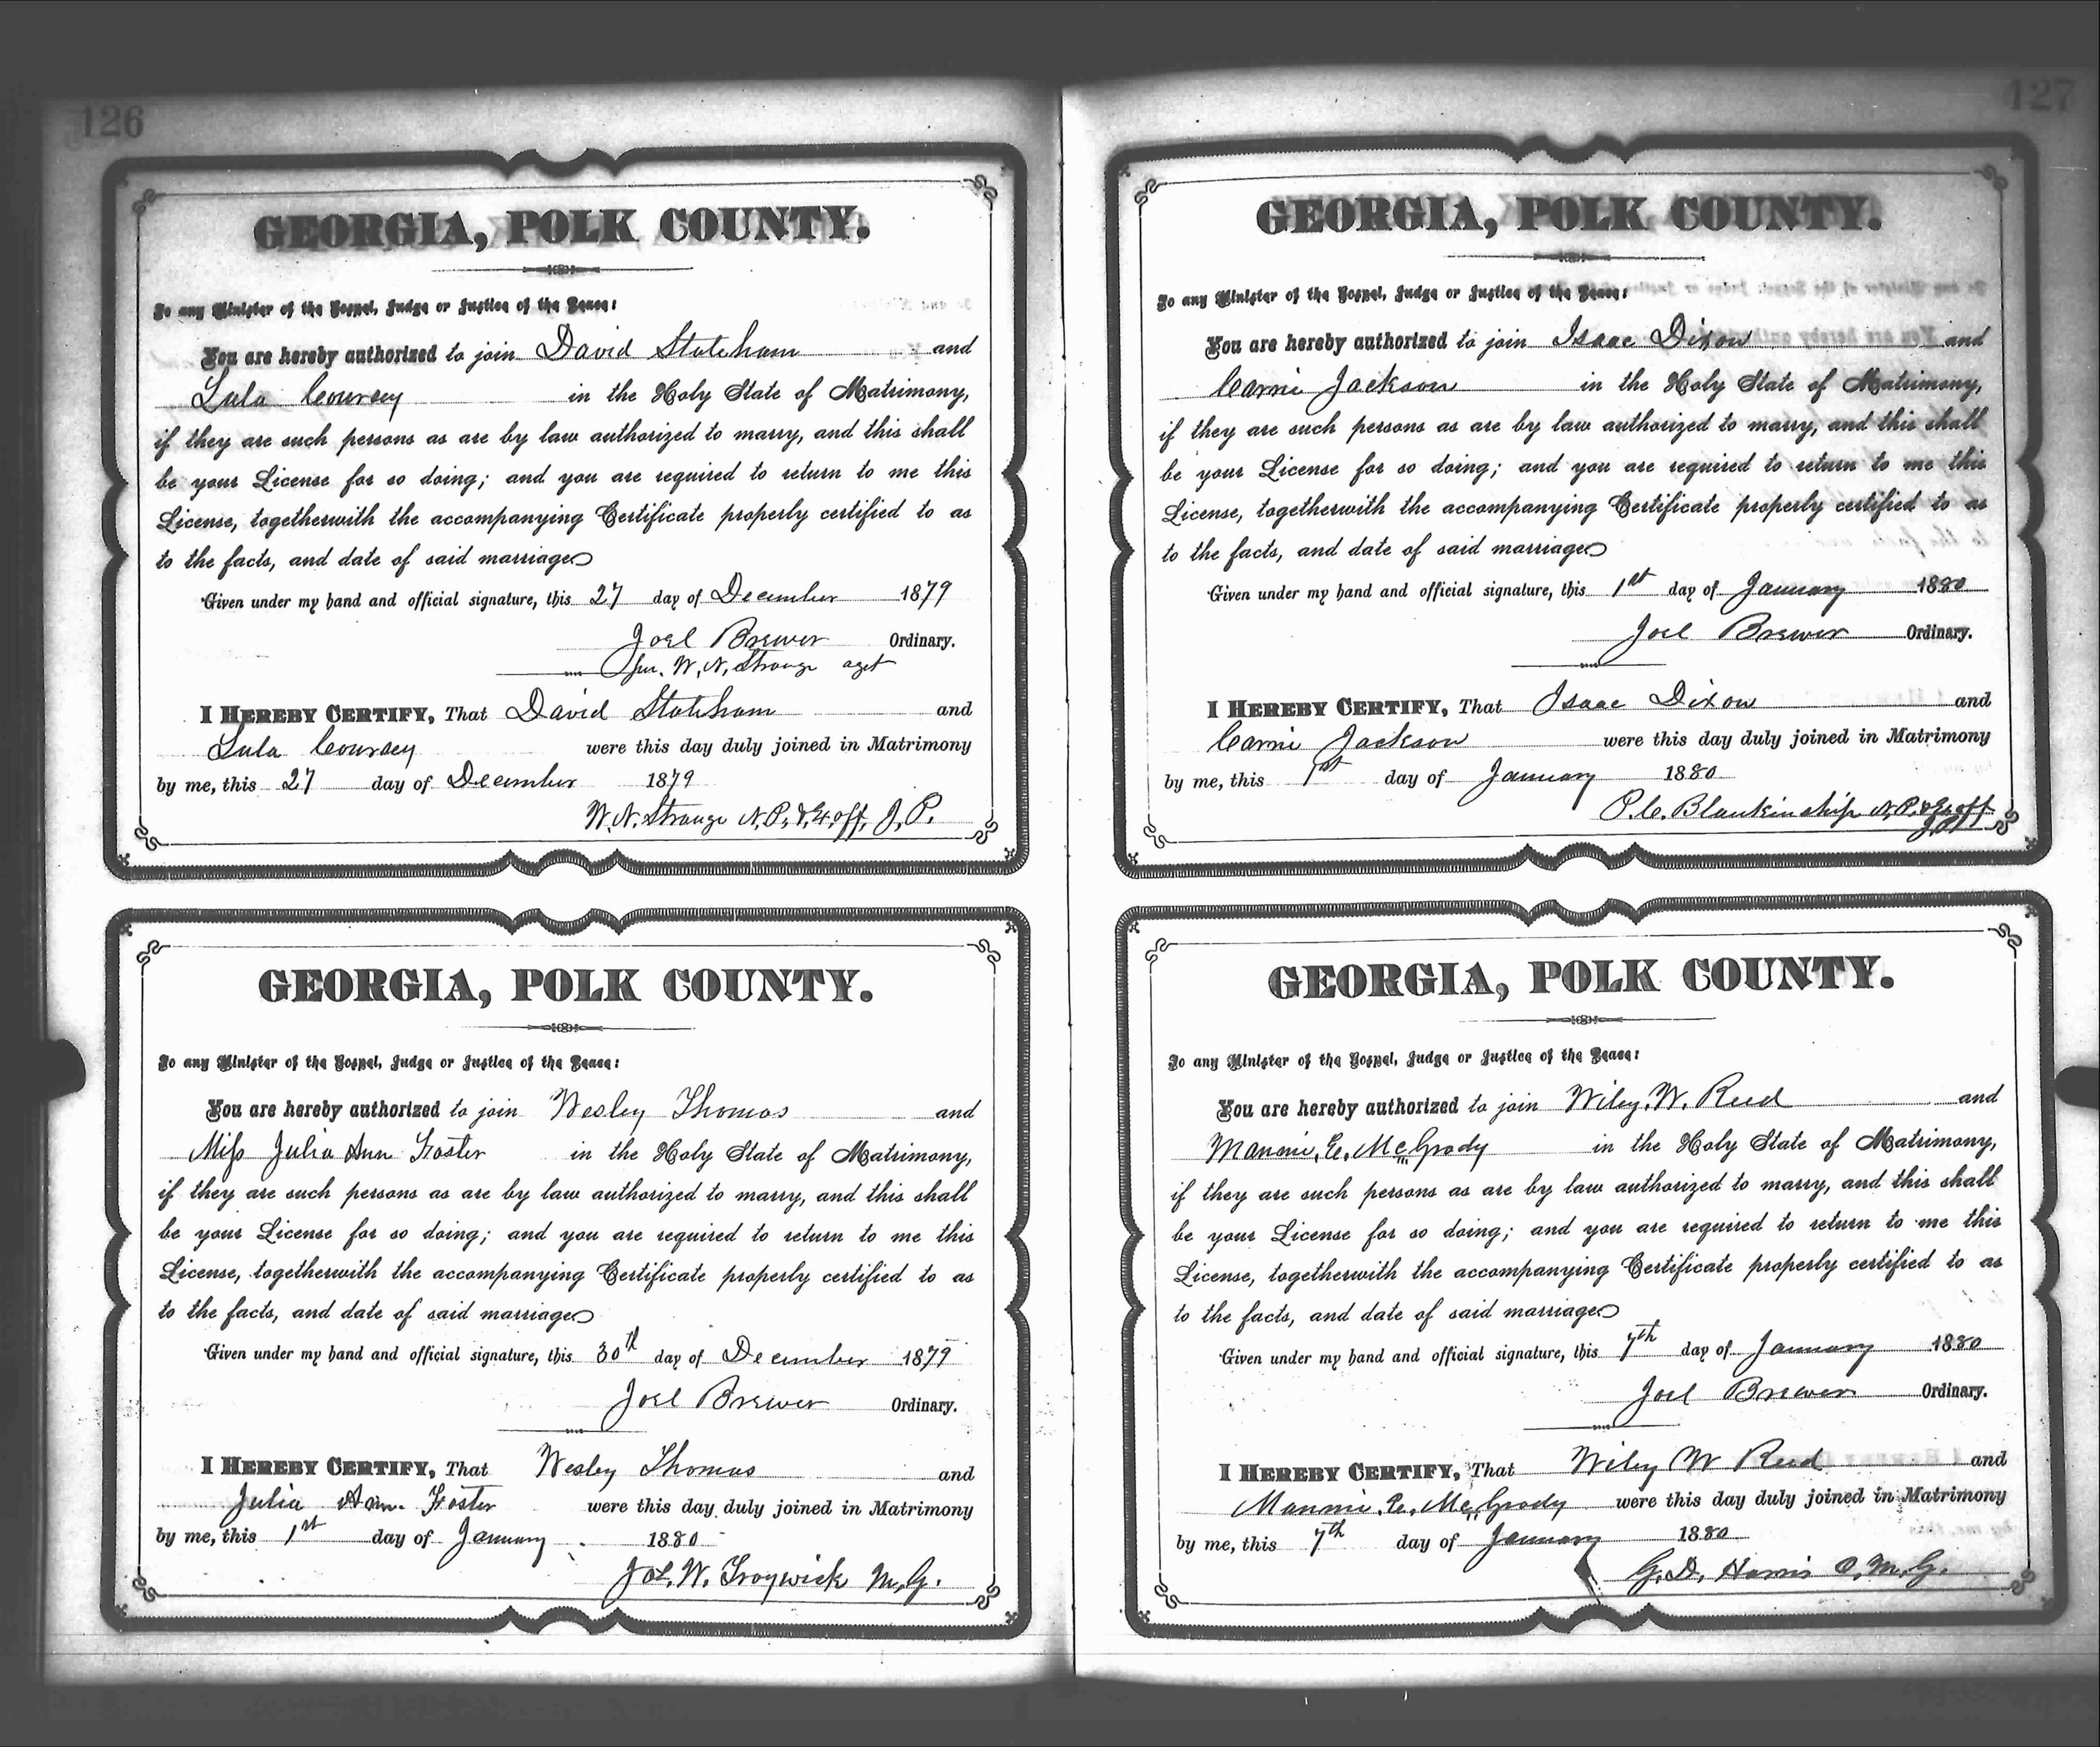 126
GEORGIA, POLK COUNTY.
To any Minister of the Gospel, Judge or Justice of the Peace:
You are hereby authorized to join David Stateham and
Lula Coursey in the Holy State of Matrimony,
if they are such persons as are by law authorized to marry, and this shall
be your License for so doing; and you are required to return to me this
License, togetherwith the accompanying Certificate properly certified to as
to the facts, and date of said marriage
Given under my hand and official signature, this 27 day of December 1879
Joel Brewer Ordinary.
W. N. Strange
I HEREBY CERTIFY, That David Stateham and
Lula Coursey were this day duly joined in Matrimony
by me, this 27 day of December 1879
W. N. Strange N. P. & Ex. off. J. P.
GEORGIA, POLK COUNTY.
To any Minister of the Gospel, Judge or Justice of the Peace:
You are hereby authorized to join Wesley Thomas and
Miss Julia Ann Foster in the Holy State of Matrimony,
if they are such persons as are by law authorized to marry, and this shall
be your License for so doing; and you are required to return to me this
License, togetherwith the accompanying Certificate properly certified to as
to the facts, and date of said marriage
Given under my hand and official signature, this 30th day of December 1879
Joel Brewer Ordinary.
I HEREBY CERTIFY, That Wesley Thomas and
Julia Ann Foster were this day duly joined in Matrimony
by me, this 1st day of January 1880
W. Trogwick M. G.
127
GEORGIA, POLK COUNTY.
To any Minister of the Gospel, Judge or Justice of the Peace:
You are hereby authorized to join Isaac Dixon and
Carrie Jackson in the Holy State of Matrimony,
if they are such persons as are by law authorized to marry, and this shall
be your License for so doing; and you are required to return to me this
License, togetherwith the accompanying Certificate properly certified to as
to the facts, and date of said marriage
Given under my hand and official signature, this 1st day of January 1880
Joel Brewer Ordinary.
I HEREBY CERTIFY, That Isaac Dixon and
Carrie Jackson were this day duly joined in Matrimony
by me, this 1st day of January 1880
P. C. Blankinship N. P. & Ex. off
J. P.
GEORGIA, POLK COUNTY.
To any Minister of the Gospel, Judge or Justice of the Peace:
You are hereby authorized to join Wiley. W. Reed and
Mannie. E. McGrody in the Holy State of Matrimony,
if they are such persons as are by law authorized to marry, and this shall
be your License for so doing; and you are required to return to me this
License, togetherwith the accompanying Certificate properly certified to as
to the facts, and date of said marriage
Given under my hand and official signature, this 7th day of January 1880
Joel Brewer Ordinary.
I HEREBY CERTIFY, That Wiley W Reed and
Mannie. E. McGrody were this day duly joined in Matrimony
by me, this 7th day of January 1880
G. D. Harris O. M. G.